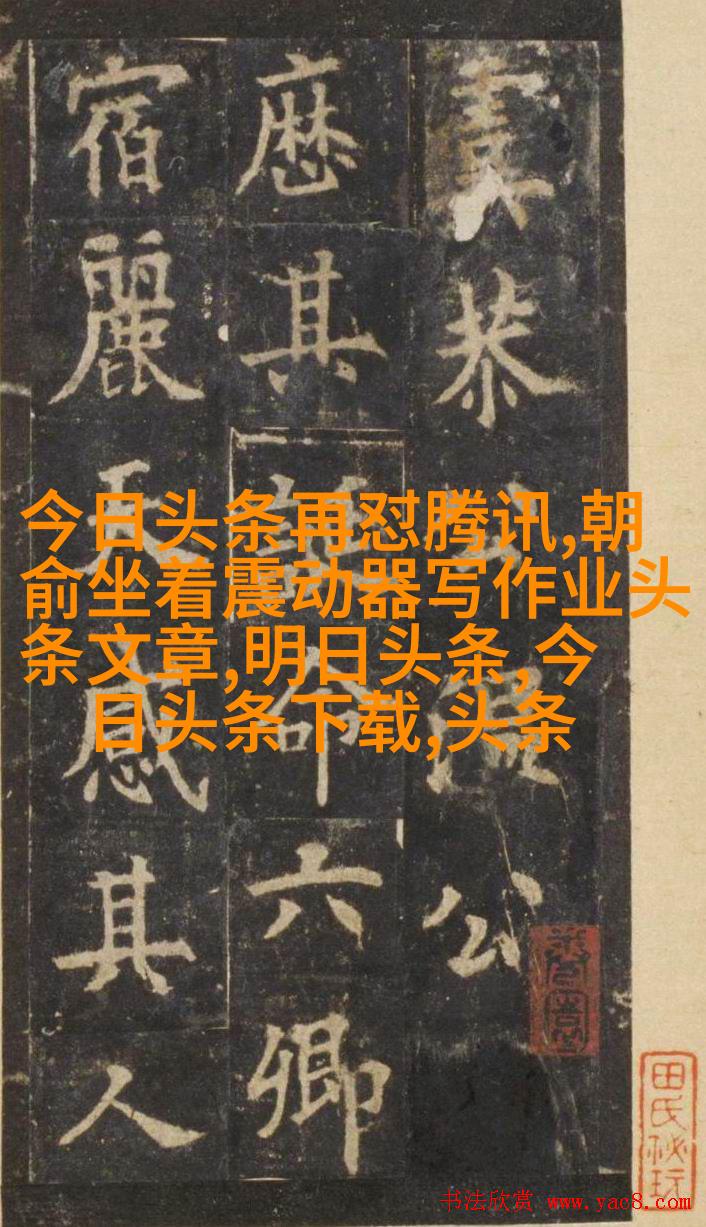 恭公温公
厯其命六卿
宿麗天感其人
今日头条再怼腾讯,朝
俞坐着震动器写作业头
条文章,明日头条,今
日头条下载,头条
田氏秘玩
书法欣赏 www.yac8.com